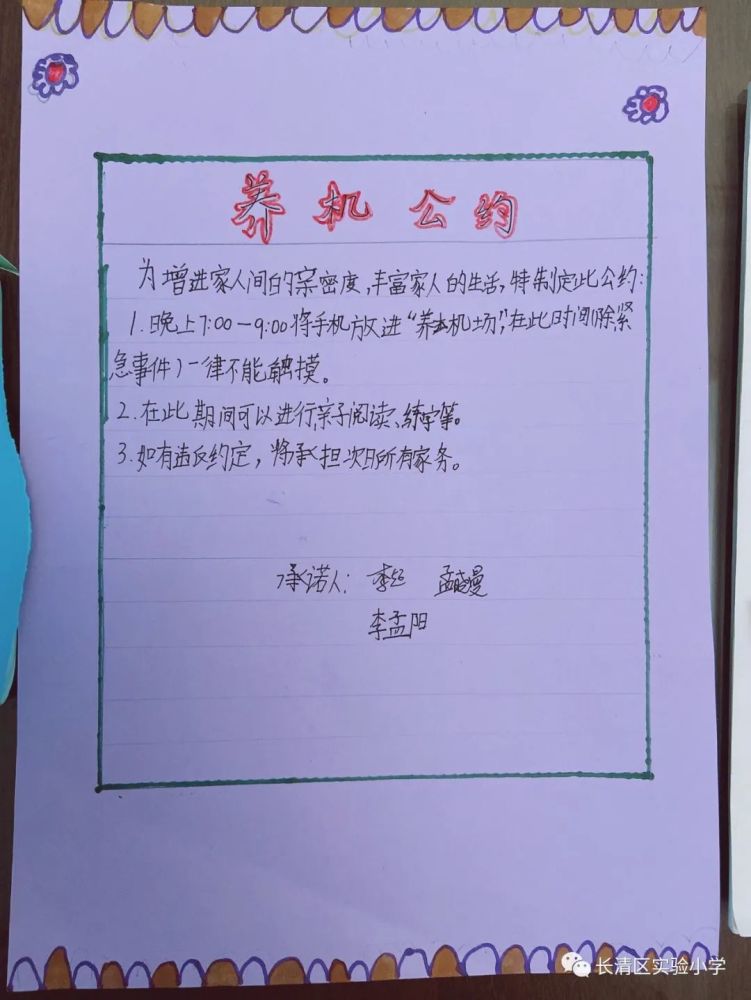 养机公约
为增进家人间的亲密度,丰富家人的生活,特制定此公约:
1.晚上7:00-9:00将手机放进“养机场”,在此时间(除紧
急事件)一律不能触摸。
2.在此期间可以进行亲子阅读、练字等。
3.如有违反约定,将承担次日所有家务。
承诺人: 李 孟
李孟阳
长清区实验小学